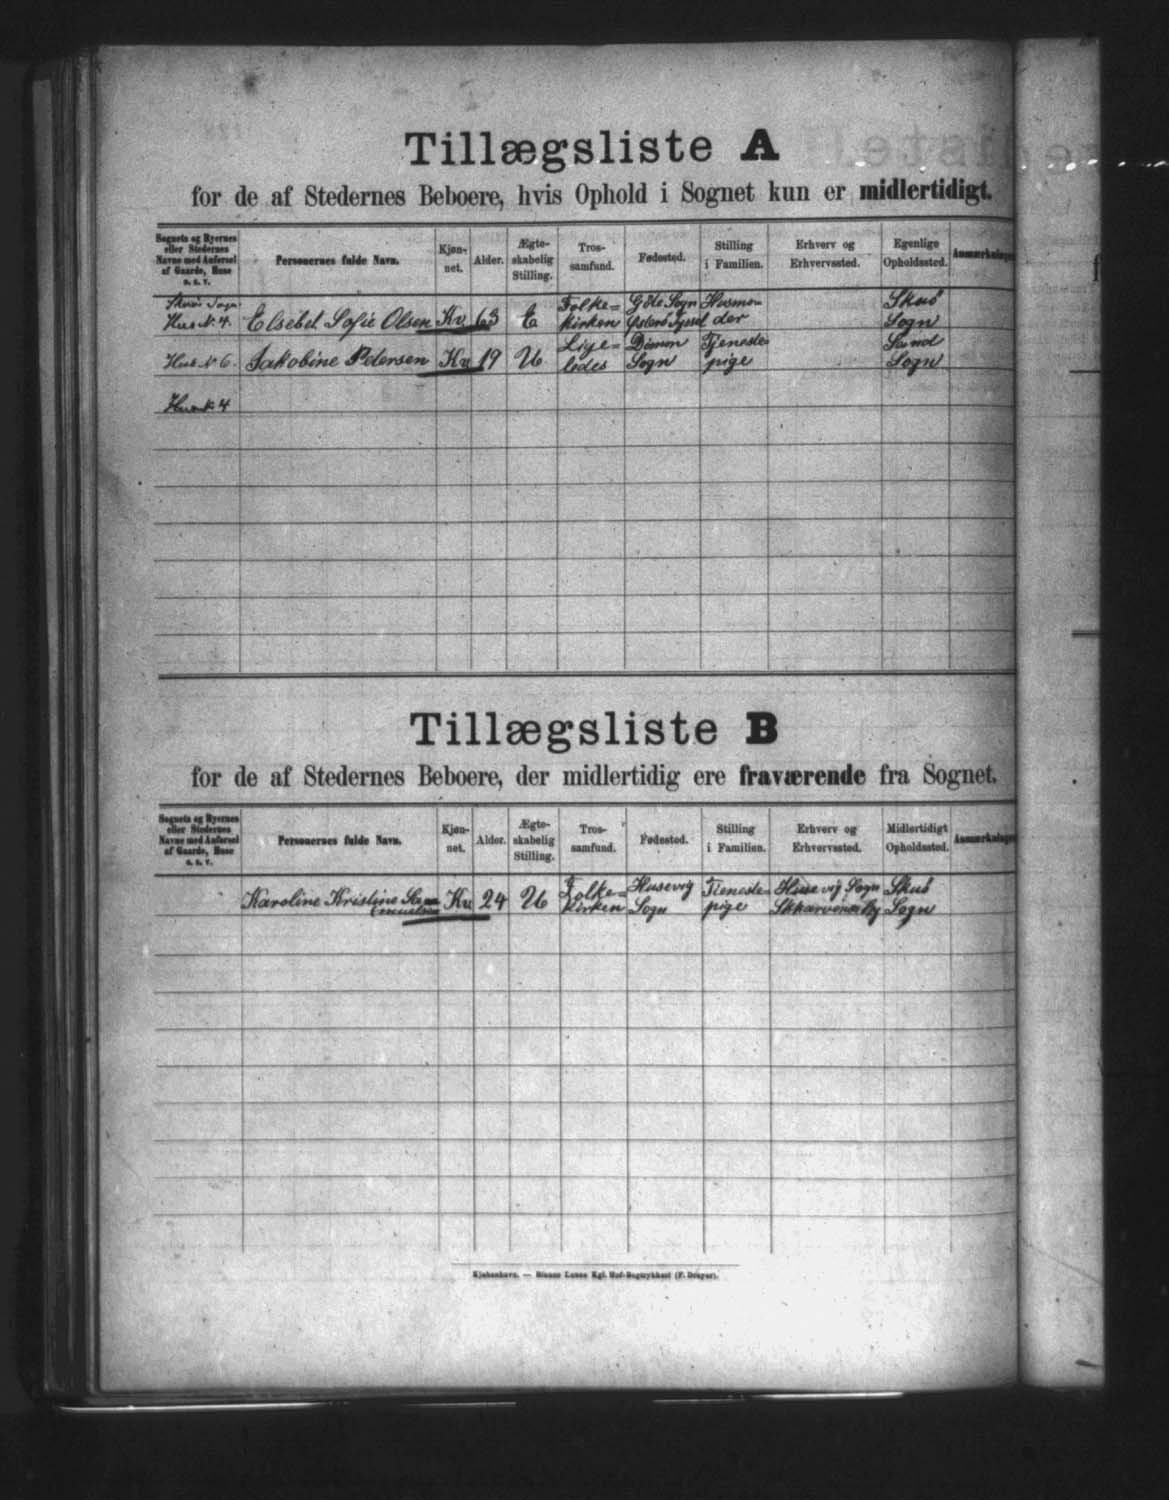 Tillægsliste A
for de af Stedernes Beboere, hvis Ophold i Sognet kun er midlertidigt.
Sognets og Byernes eller Stedernes Navne med Anførsel af Gaarde, Huse o. s. v. | Personernes fulde Navn. | Kjøn-net. | Alder. | Ægte-skabelig Stilling. | Tros-samfund. | Fødested. | Stilling i Familien. | Erhverv og Erhvervssted. | Egenlige Opholdssted. | Anmærkninger
Skuö Sogn Hus N. 4. | Elsebet Sofie Olsen | Kv | 63 | E | Folke=kirken | Göte Sogn Österö Syssel | Husmo-der | | Skuö Sogn
Hus N. 6. | Jakobine Pedersen | Kv | 19 | U | Lige=ledes | Dimon Sogn | Tjeneste=pige | | Sand Sogn
Hus N. 4
Tillægsliste B
for de af Stedernes Beboere, der midlertidig ere fraværende fra Sognet.
Sognets og Byernes eller Stedernes Navne med Anførsel af Gaarde, Huse o. s. v. | Personernes fulde Navn. | Kjøn-net. | Alder. | Ægte-skabelig Stilling. | Tros-samfund. | Fødested. | Stilling i Familien. | Erhverv og Erhvervssted. | Midlertidigt Opholdssted. | Anmærkninger
Karoline Kristine | Kv | 24 | U | Folke=kirken | Husevig Sogn | Tjeneste=pige | Husevig Sogn By | Skuö Sogn
Kjøbenhavn. — Bianco Lunos Kgl. Hof-Bogtrykkeri (F. Dreyer).